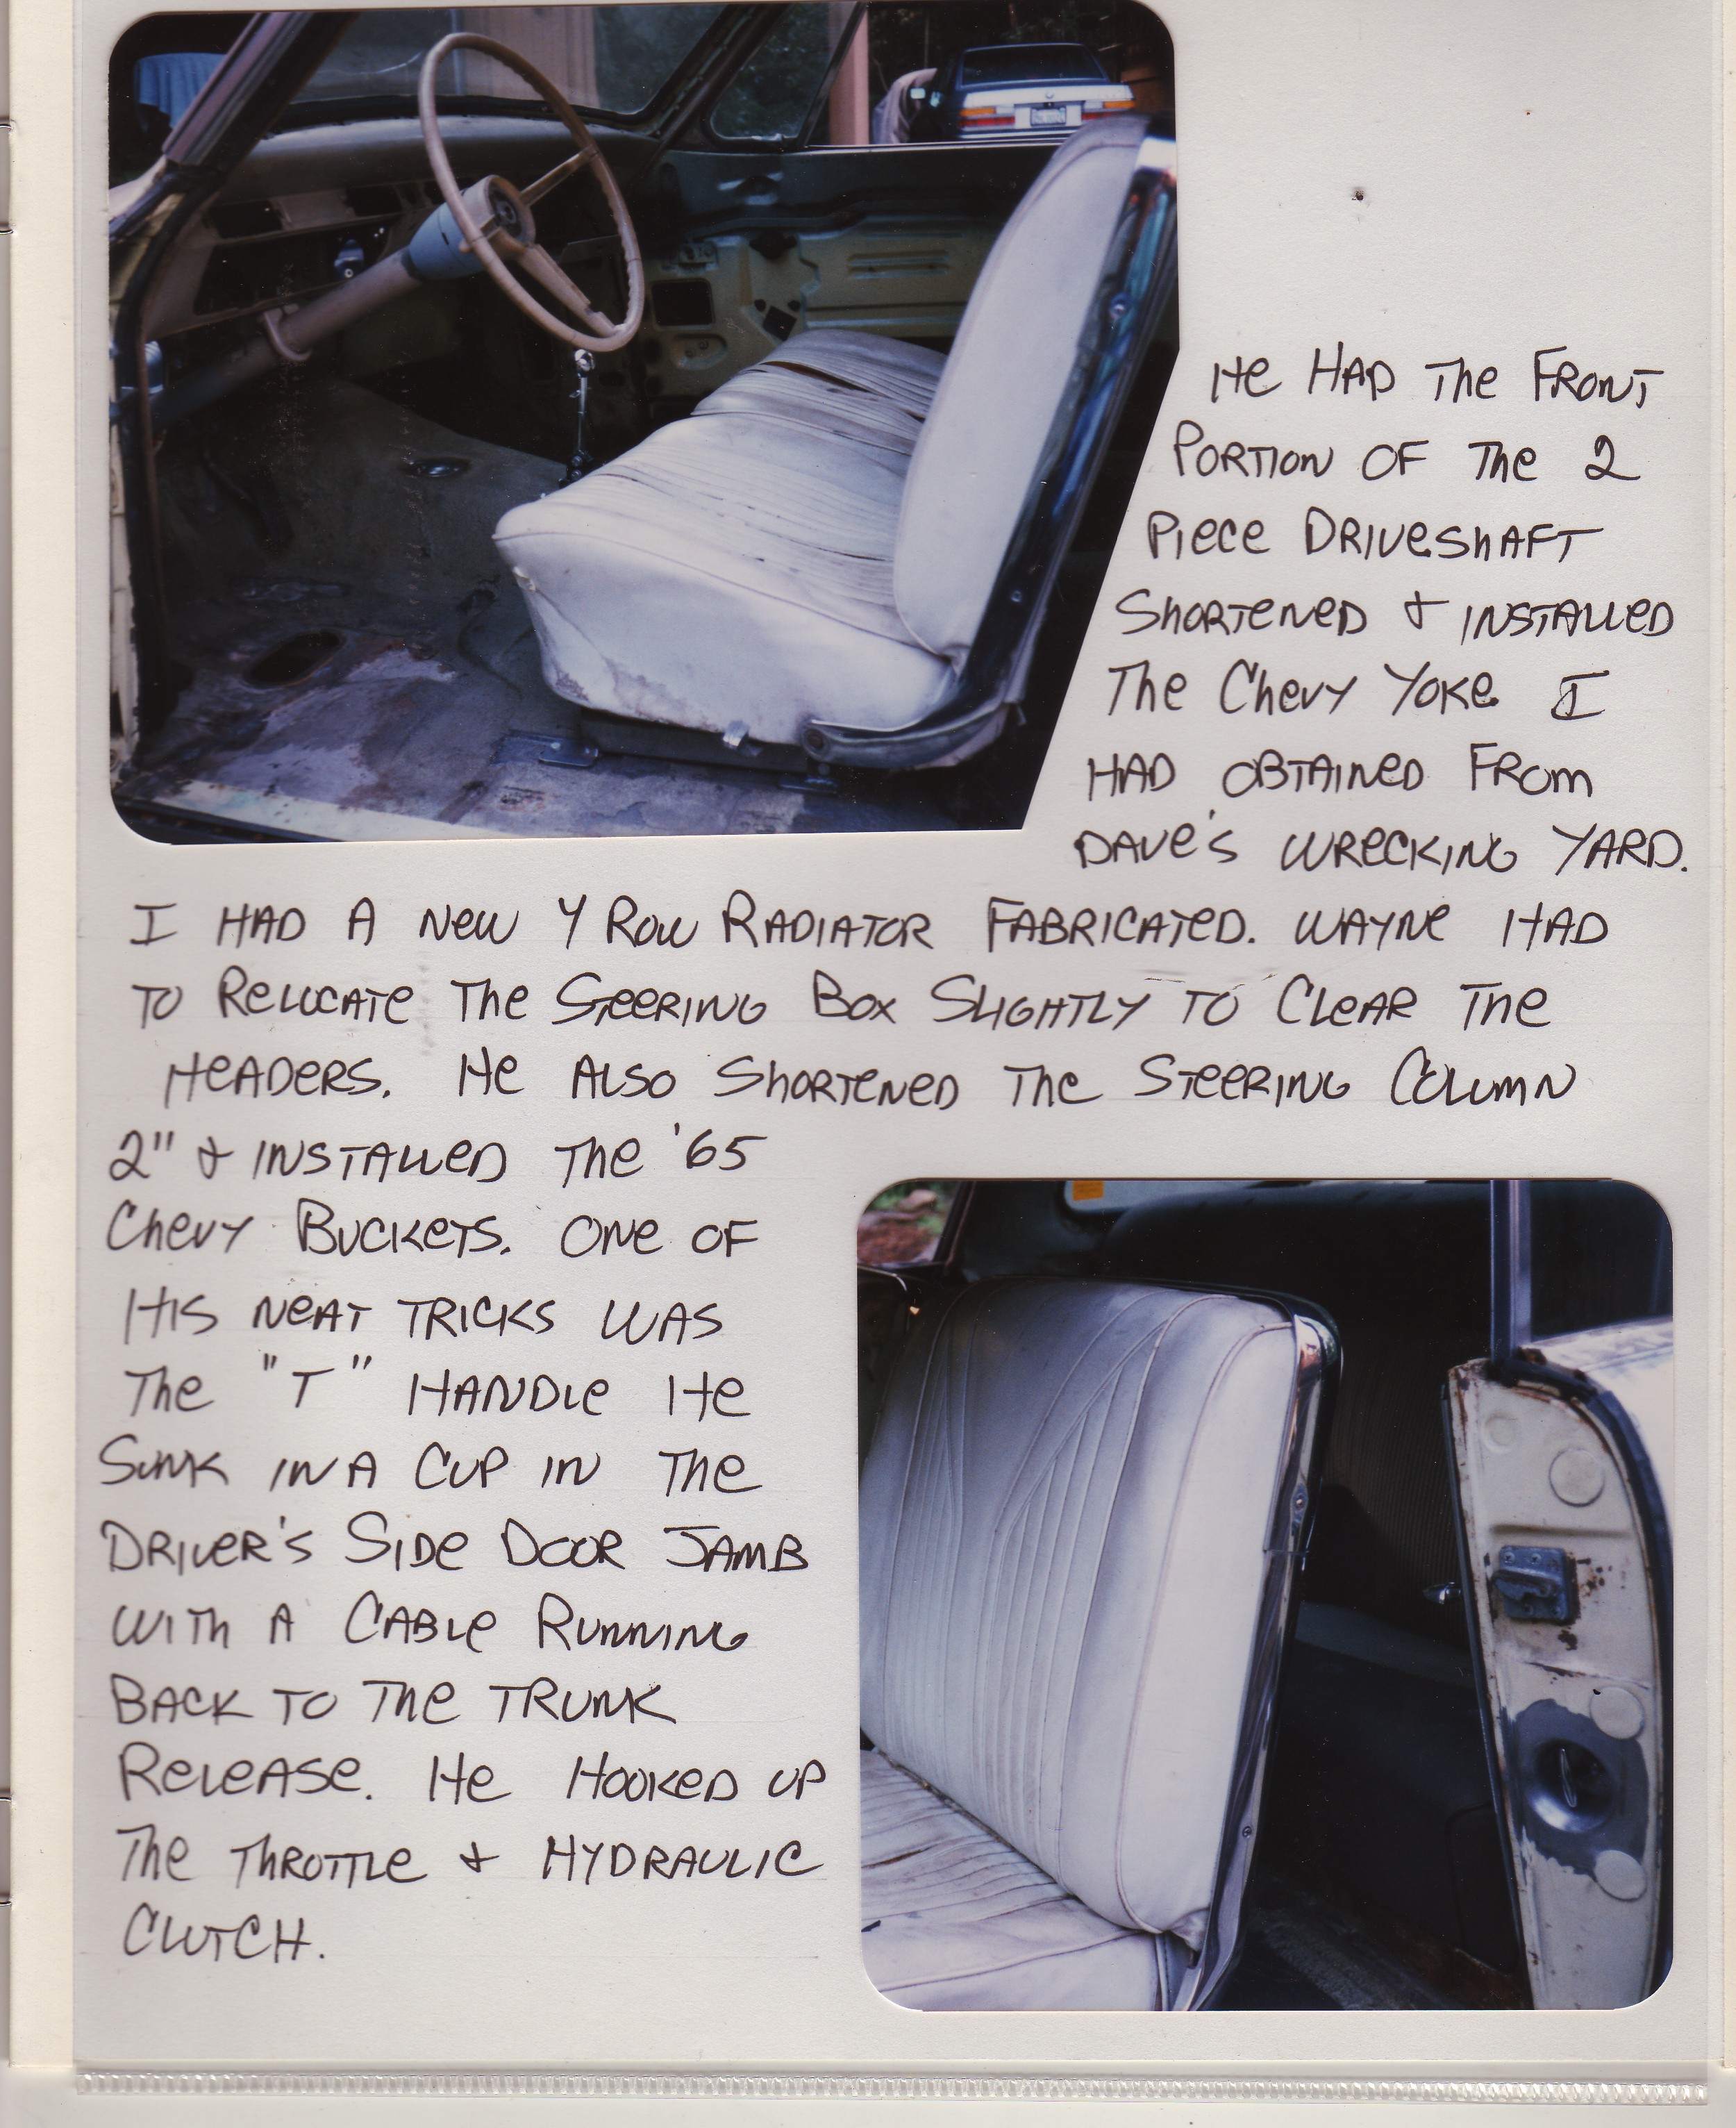 He HAD The FRONT
PORTION OF The 2
Piece DRIVESHAFT
SHORTENED & INSTALLED
The Chevy Yoke I
HAD OBTAINED FROM
DAVE'S WRECKING YARD.
I HAD A NEW 4 ROW RADIATOR FABRICATED. WAYNE HAD
TO RELOCATE The STEERING BOX SLIGHTLY TO CLEAR The
HEADERS. He ALSO SHORTENED The STEERING COLUMN
2" & INSTALLED The '65
Chevy BUCKETS. ONE OF
HIS NEAT TRICKS WAS
The "T" HANDLE He
SUNK IN A CUP IN The
DRIVER'S SIDE DOOR JAMB
WITH A CABLE RUNNING
BACK TO The TRUNK
RELEASE. He HOOKED UP
The THROTTLE & HYDRAULIC
CLUTCH.